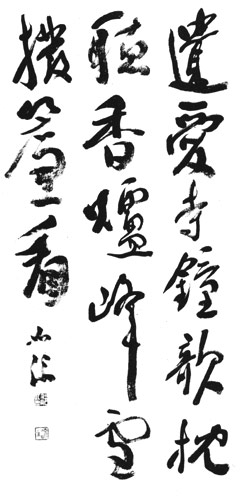 遺愛寺鐘欹枕
聴香爐峰雪
撥簾看